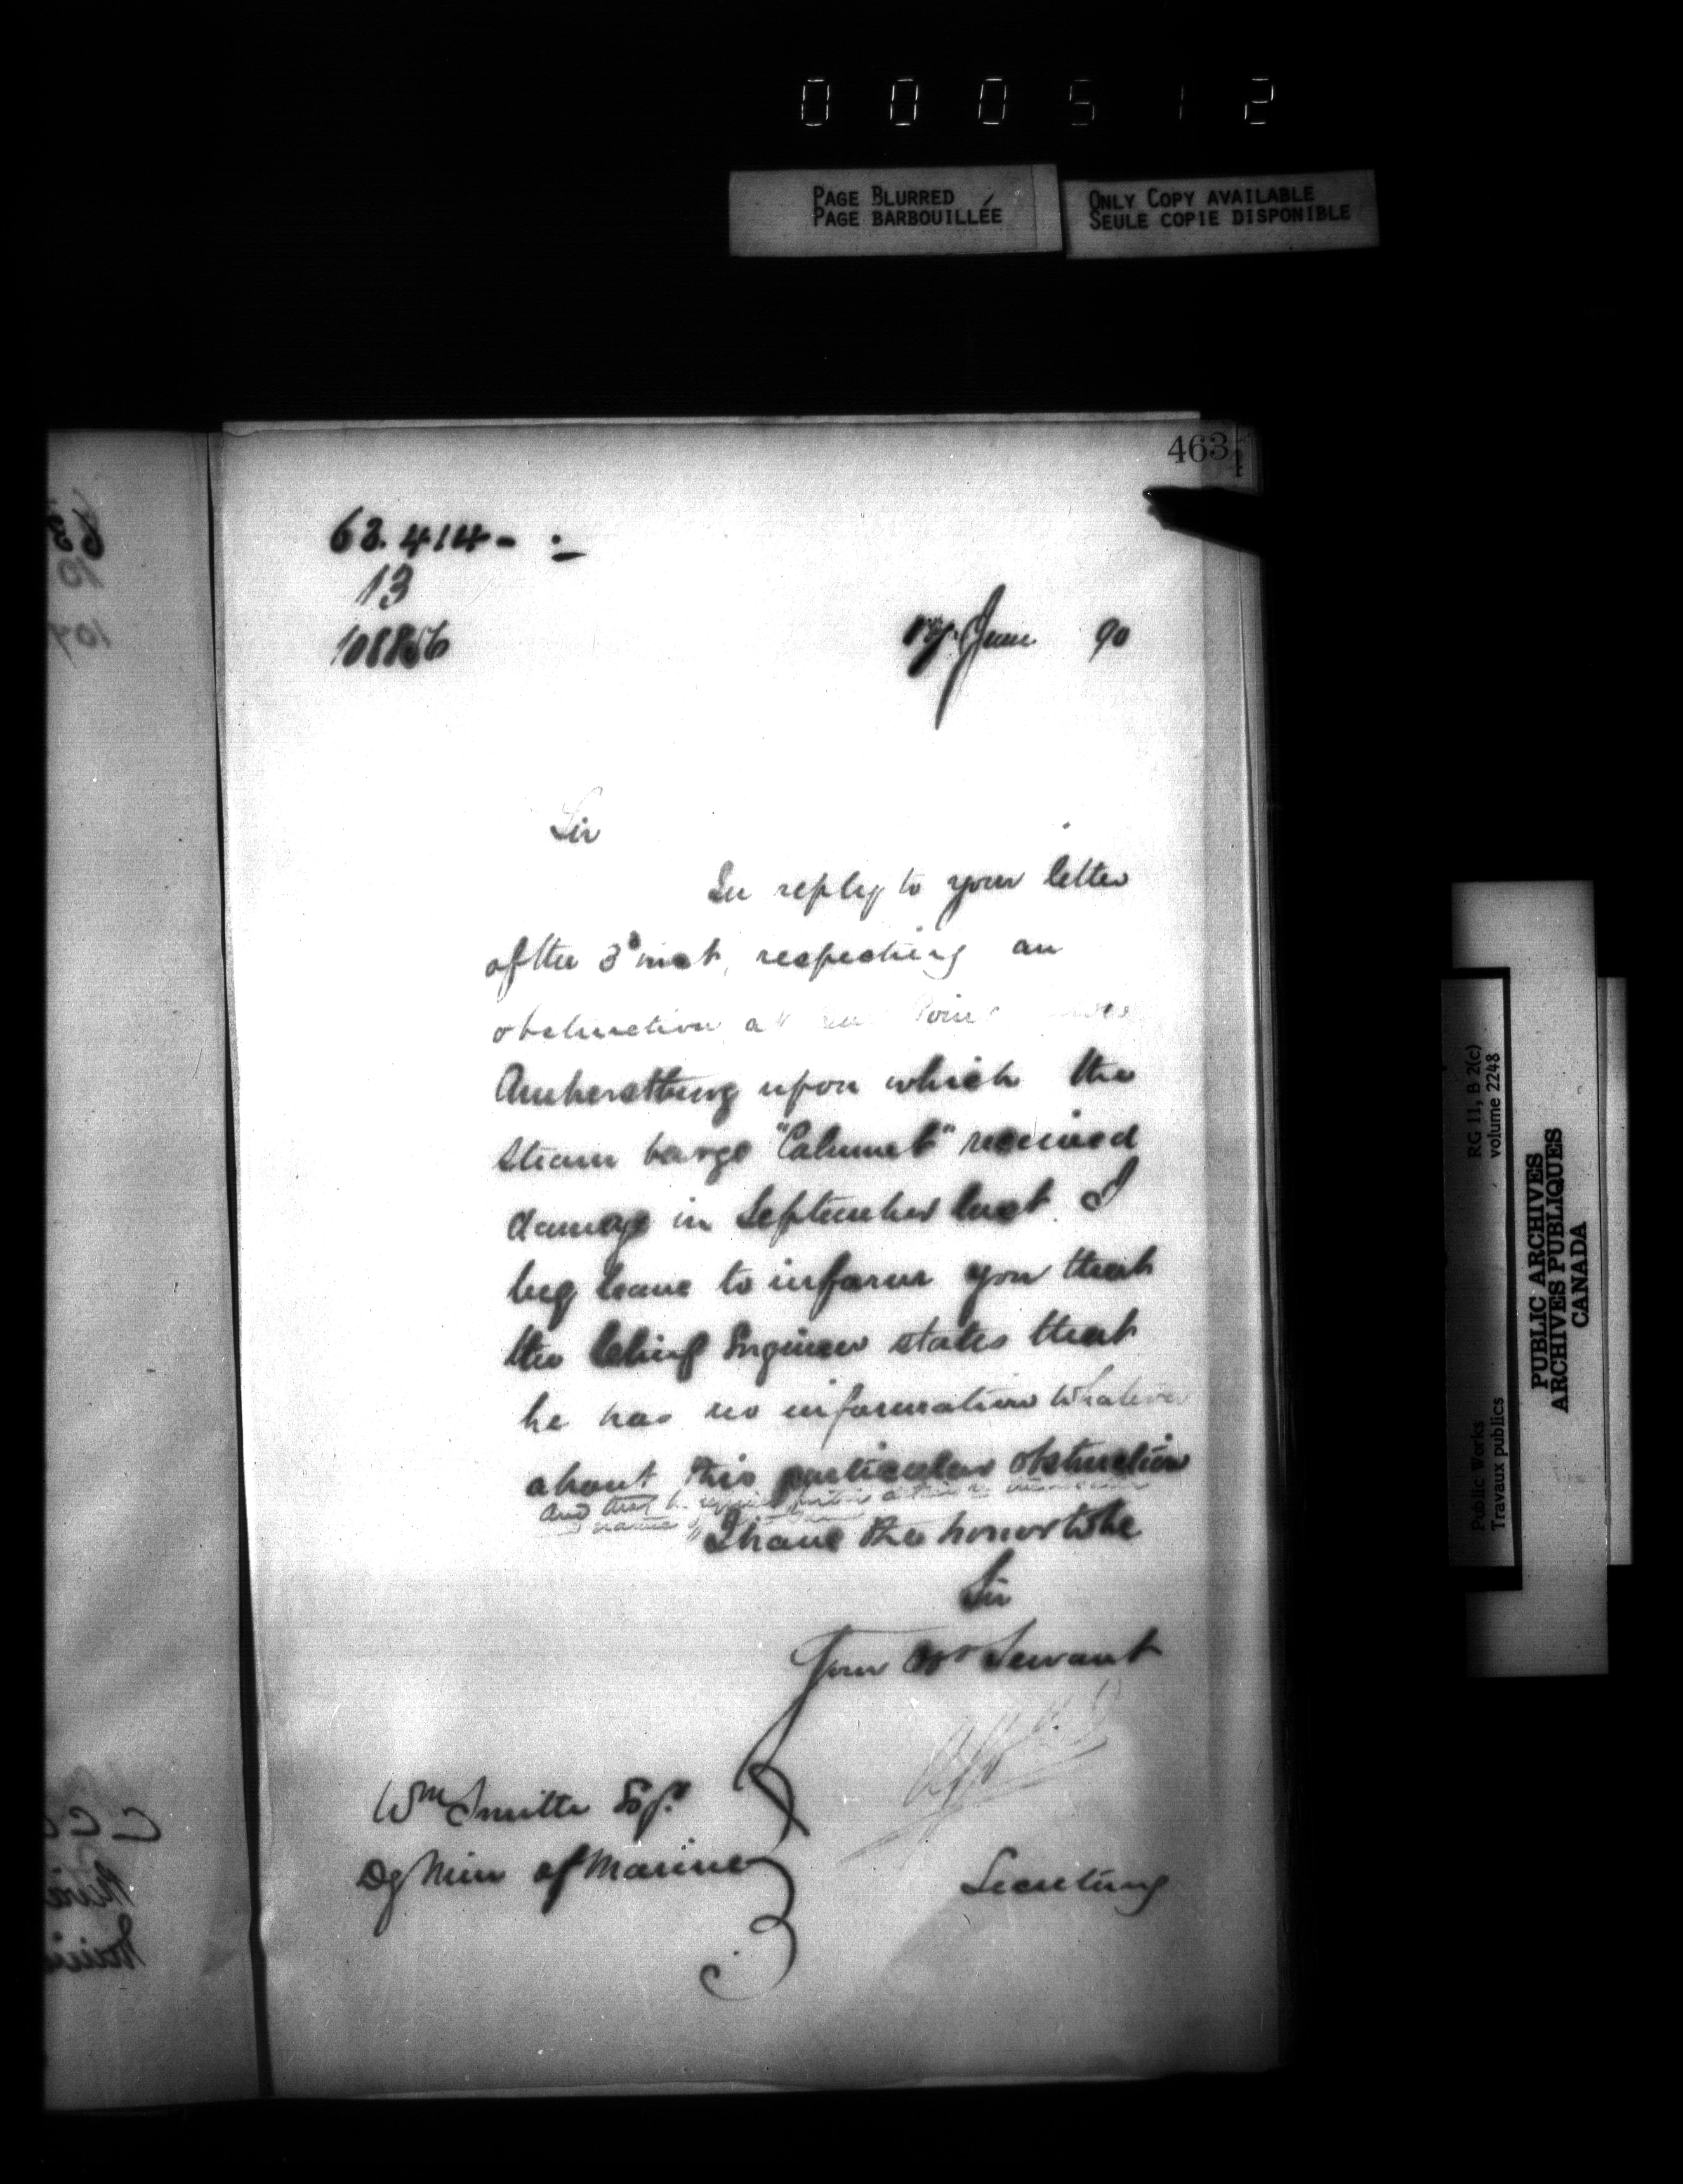 000512
PAGE BLURRED
PAGE BARBOUILLÉE
ONLY COPY AVAILABLE
SEULE COPIE DISPONIBLE
463
63.414 -
13
108856
June 90
Sir
In reply to your letter
of the 3d inst, respecting an
obstruction at Point
Amherstburg upon which the
steam barge "Calumet" received
damage in September last. I
beg leave to inform you that
the Chief Engineer states that
he has no information whatever
about this particular obstruction
and that he
I have the honor to be
Sir
Your Obt Servant
Secretary
Wm Smith Esqr
Dy Min of Marine
RG 11, B 2(c)
volume 2248
Public Works
Travaux publics
PUBLIC ARCHIVES
ARCHIVES PUBLIQUES
CANADA